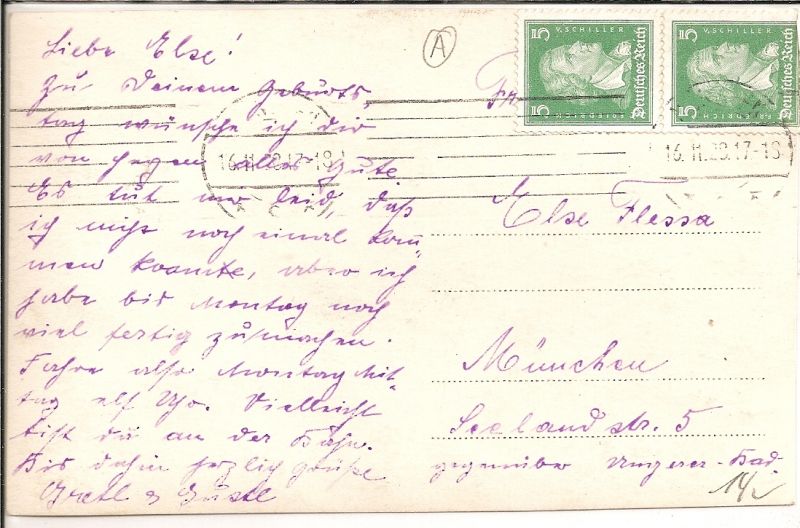 Liebe Else!
Zu Deinem Geburts
tag wünsche ich dir
von Herzen alles Gute
Es tut mir leid, daß
ich nicht noch einmal kom
men konnte, aber ich
habe bis Montag noch
viel fertig zu machen.
Fahre also Montag Mit-
tag elf Uhr. Vielleicht
bist du an der Bahn.
Bis dahin herzlich Grüße
Gretl & Gustl
A
5 V. SCHILLER 5
Deutsches Reich
FRIEDRICH
5 V. SCHILLER 5
Deutsches Reich
FRIEDRICH
16.11.28.17-18
16.11.28.17-18
Else Flessa
München
Seelandstr. 5
gegenüber Ungerer-Bad.